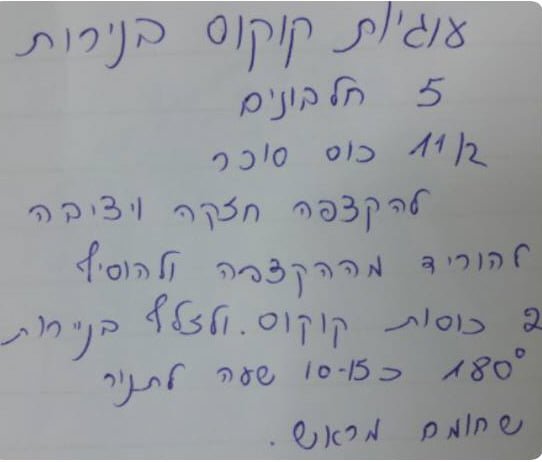 עוגיות קוקוס בנירות
5 חלבונים
11/2 כוס סוכר
להקצפה חזקה ויציבה
להוריד מההקצפה ולהוסיף
2 כוסות קוקוס. ולזלף בניירות
180° כ 10-15 שעה לתניר
שחומם מראש.